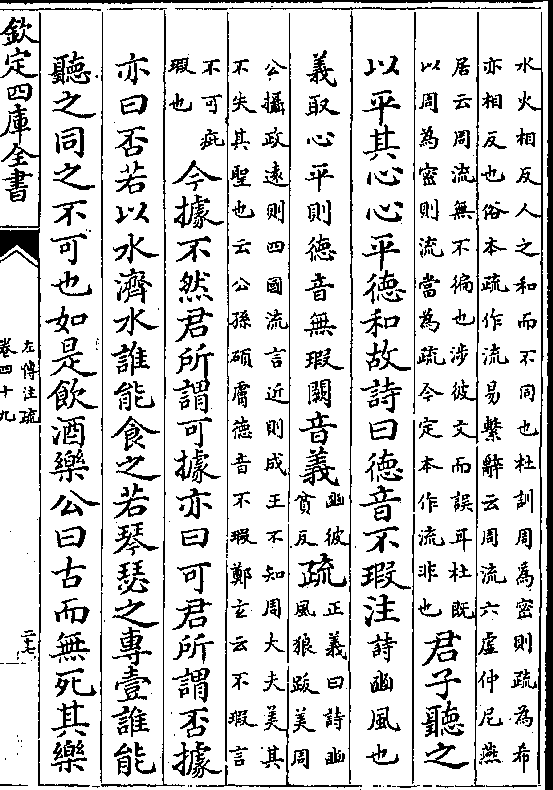 水火相反人之和而不同也杜訓周爲密則疏爲希
亦相反也俗本疏作流易繫辭云周流六虛仲尼燕
居云周流無不徧也涉彼文而誤耳杜既
以周為密則流當為疏今定本作流非也
君子聽之
以平其心心平德和故詩曰德音不瑕注詩豳風也
義取心平則德音無瑕闕音義豳彼
貧反
疏正義曰詩豳
風狼跋美周
公攝政遠則四國流言近則成王不知周大夫美其
不失其聖也云公孫碩膚德音不瑕鄭玄云不瑕言
不可疵
瑕也
今據不然君所謂可據亦曰可君所謂否據
亦曰否若以水濟水誰能食之若琴瑟之專壹誰能
聽之同之不可也如是飲酒樂公曰古而無死其樂
欽定四庫全書
左傳注疏
卷四十九
二十七